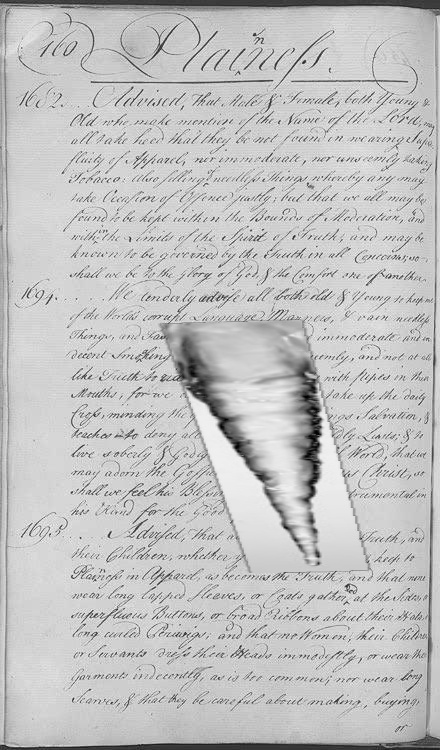 160
Plainness.
1682... Advised, That Male & Female, both Young &
Old who make mention of the Name of the Lord, may
all take heed that they be not found in wearing Supr
fluity of Apparel, nor immoderate, nor unseemly taking
Tobacco: Also selling needless Things whereby any may
take Occasion of Offence justly; but that we all may be
found to be kept within the Bounds of Moderation, and
within the Limits of the Spirit of Truth; and may be
known to be governed by the Truth in all Concerns, so
shall we be to the Glory of God, & the Comfort one of another.
1694. .... We tenderly advise all both old & Young to keep out
of the World's corrupt Language Manners, & vain needless
Things, and immoderate and in
decent Smoking and not at all
like Truth to with pipes in their
Mouths; for we take up the daily
Cross, minding the Salvation, &
teaches to deny all Lusts; & to
live soberly & Godly World, that we
may adorn the Gospel Christ, so
shall we feel his Blessing Instrumental in
his Hand for the Good
1695... Advised, That a Truth, and
their Children, whether y keep to
Plainness in Apparel, as becomes the Truth, and that none
wear long lapped Sleeves, or Coats gathered at the Sides, or
superfluous Buttons, or broad Ribbons about their Hats, or
long curled Periwigs; and that no Women, their Children
or Servants dress their Heads immodestly, or wear their
Garments indecently, as is too common; nor wear long
Scarves, & that they be careful about making, buying,
or